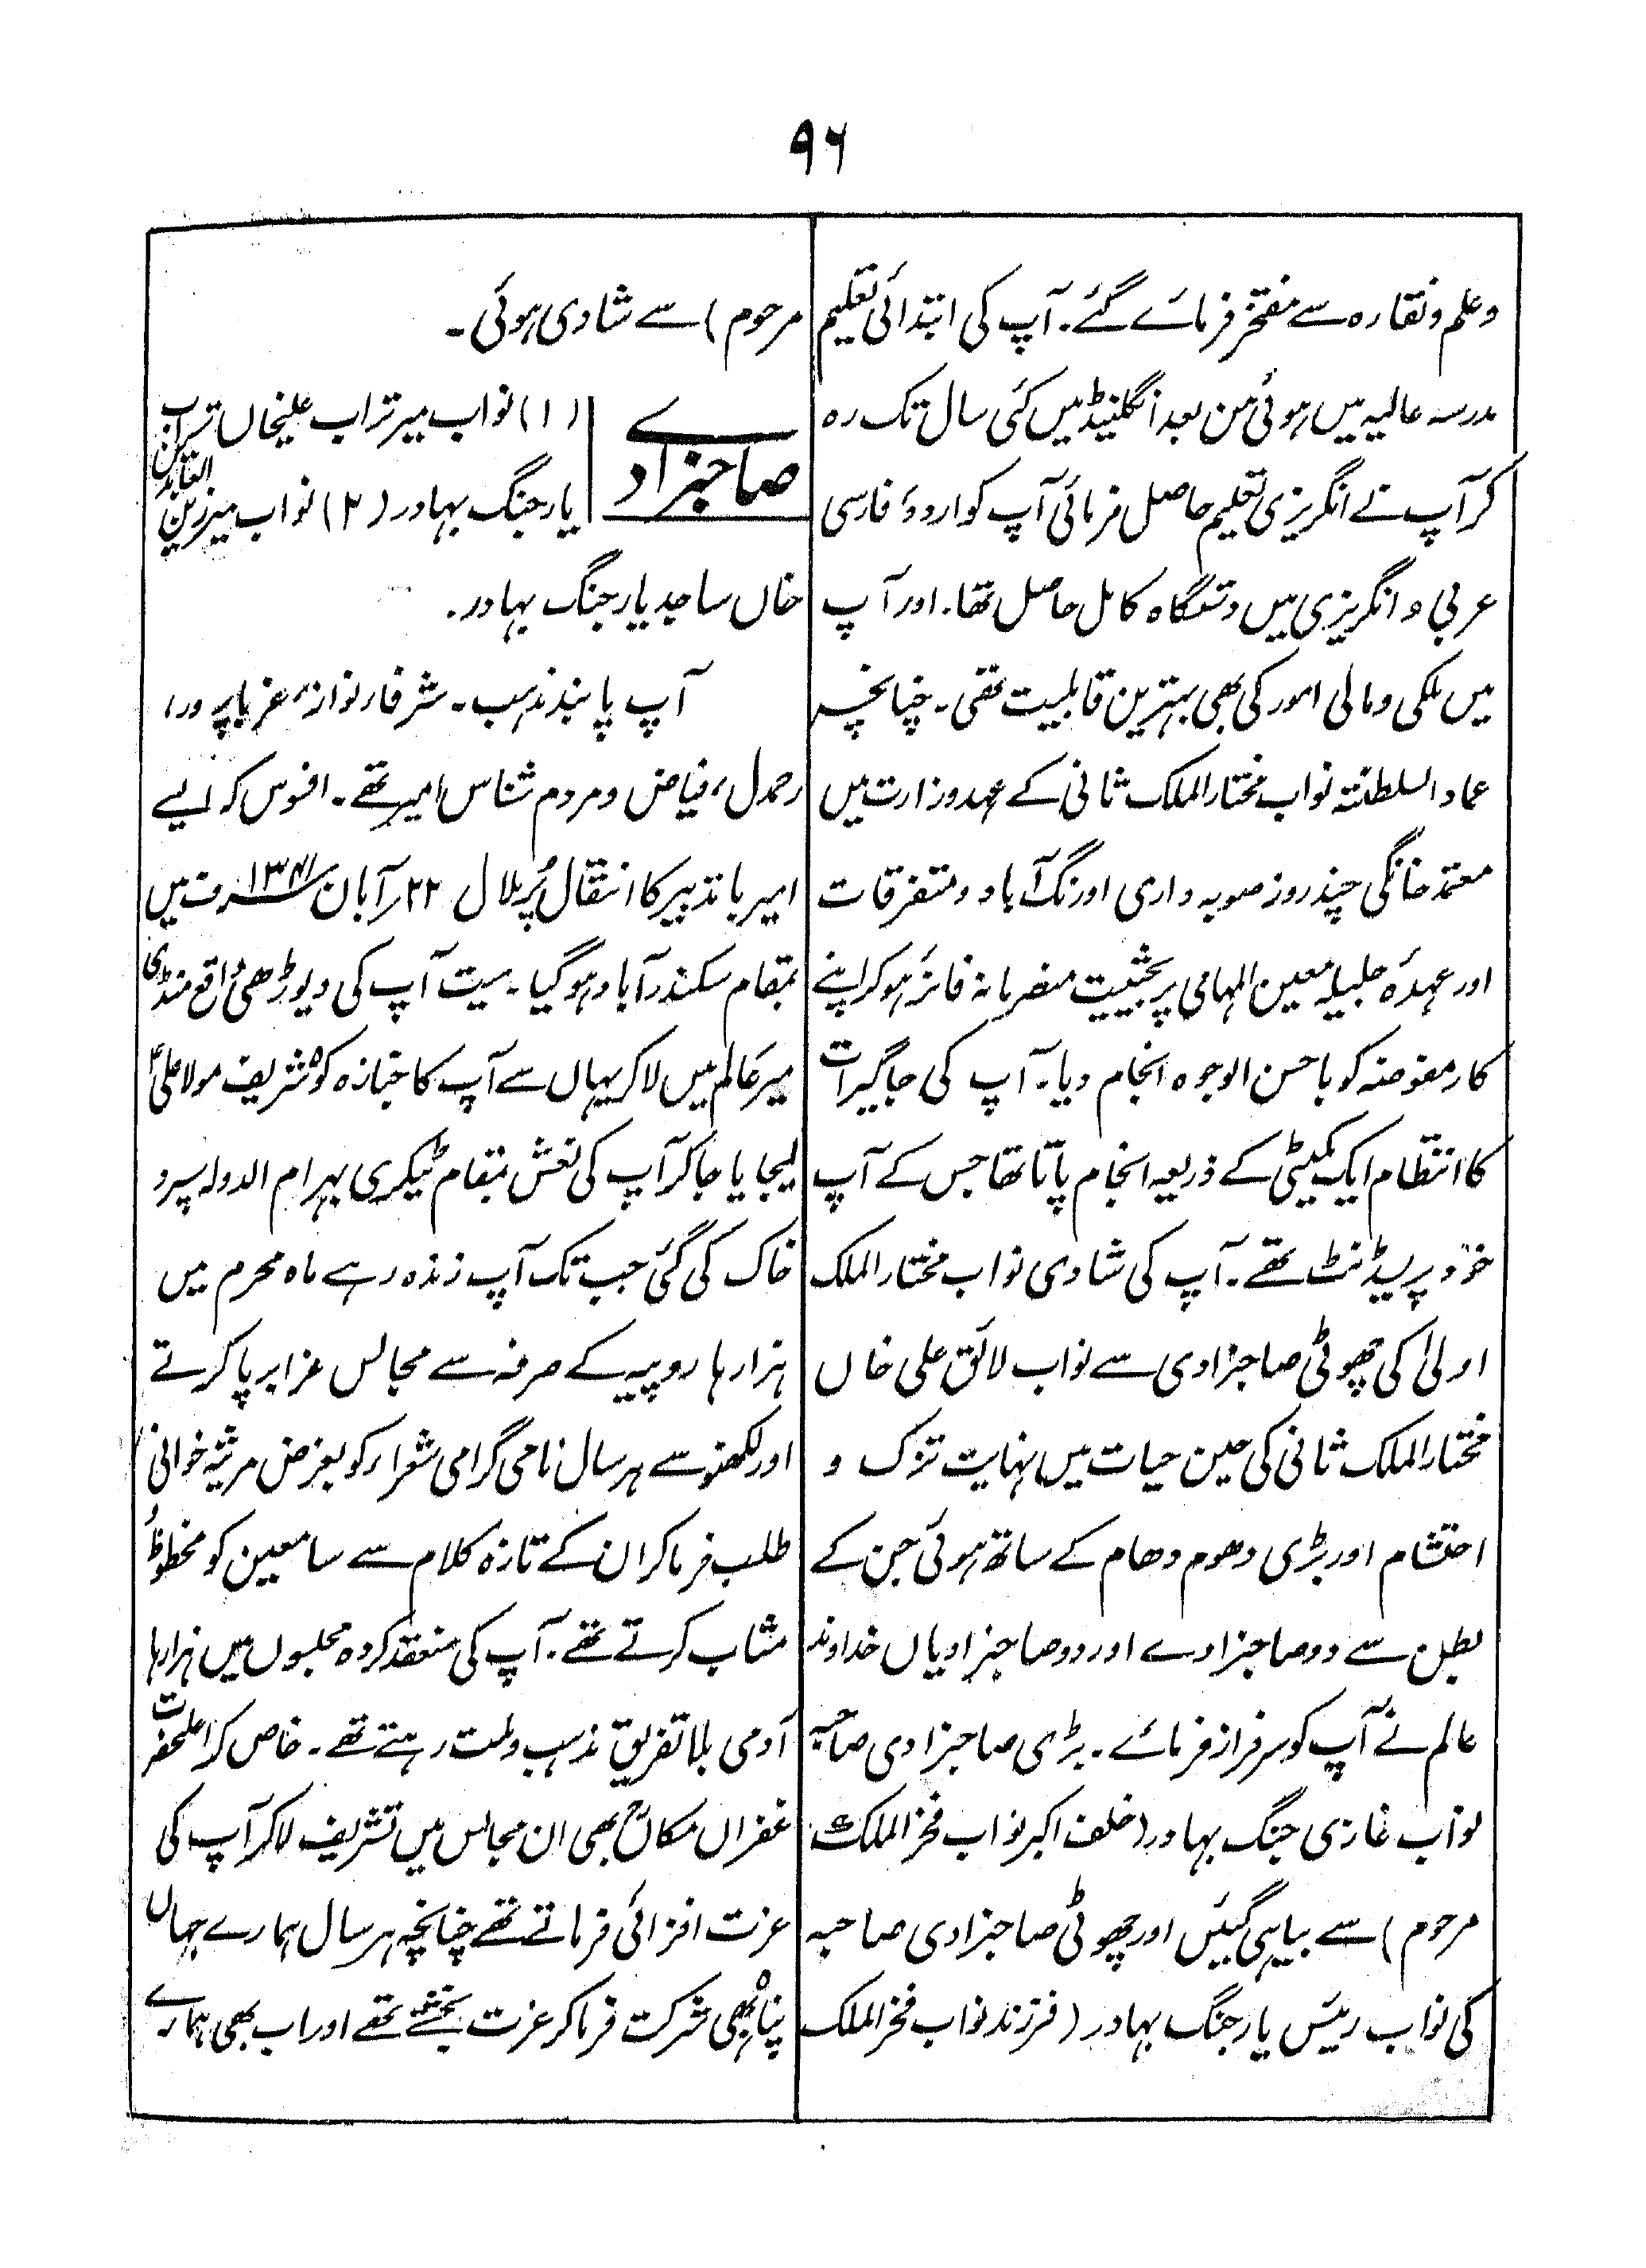 ۹۶
و علم و نقارہ سے مفتخر فرمائے گئے۔ آپ کی ابتدائی تعلیم
مدرسہ عالیہ میں ہوئی من بعد انگلینڈ میں کئی سال تک رہ
کر آپ نے انگریزی تعلیم حاصل فرمائی آپ کو اردو، فارسی
عربی و انگریزی میں دستگاہ کامل حاصل تھا۔ اور آپ
میں ملکی و مالی امور کی بھی بہترین قابلیت تھی۔ چنانچہ
عماد السلطنتہ نواب مختار الملک ثانی کے عہد وزارت میں
معتمد خانگی چند روز صوبہ داری اورنگ آباد و متفرقات
اور عہدۂ جلیلہ معین المہامی پر بحیثیت منصرمانہ فائز ہو کر اپنے
کار مفوضہ کو باحسن الوجوہ انجام دیا۔ آپ کی جاگیرات
کا انتظام ایک کمیٹی کے ذریعہ انجام پاتا تھا جس کے آپ
خود پریسڈنٹ تھے۔ آپ کی شادی نواب مختار الملک
اولیٰ کی چھوٹی صاحبزادی سے نواب لائق علی خاں
مختار الملک ثانی کی حین حیات میں نہایت تزک و
احتشام اور بڑی دھوم دھام کے ساتھ ہوئی جن کے
بطن سے دو صاحبزادے اور دو صاحبزادیاں خداوند
عالم نے آپ کو سرفراز فرمائے۔ بڑی صاحبزادی صاحبہ
نواب غازی جنگ بہادر (خلف اکبر نواب فخر الملک
مرحوم) سے بیاہی گئیں اور چھوٹی صاحبزادی صاحبہ
کی نواب رئیس یار جنگ بہادر (فرزند نواب فخر الملک
مرحوم) سے شادی ہوئی۔
صاحبزادے
(۱) نواب میر تراب علیخاں تراب
یار جنگ بہادر (۲) نواب میر زین العابدین
خاں ساجد یار جنگ بہادر۔
آپ پابند مذہب۔ شرفاء نواز، غربا پرور،
رحمدل، فیاض و مردم شناس امیر تھے۔ افسوس کہ ایسے
امیر باتدبیر کا انتقال پُر ملال ۲۲؍ آبان ۱۳۴۱ ف میں
بمقام سکندر آباد ہو گیا۔ میت آپ کی دیوڑھی واقع منڈی
میر عالم میں لا کر یہاں سے آپ کا جنازہ کوہ شریف مولا علیؑ
لیجایا جا کر آپ کی نعش بمقام ٹیکری بہرام الدولہ سپرد
خاک کی گئی جب تک آپ زندہ رہے ماہ محرم میں
ہزارہا روپیہ کے صرفہ سے مجالس عزا برپا کرتے
اور لکھنو سے ہر سال نامی گرامی شعراء کو بغرض مرثیہ خوانی
طلب فرما کر ان کے تازہ کلام سے سامعین کو محظوظ و
مثاب کرتے تھے۔ آپ کی منعقد کردہ مجلسوں میں ہزارہا
آدمی بلا تفریق مذہب و ملت رہتے تھے۔ خاص کر اعلحضرت
غفراں مکانؒ بھی ان مجالس میں تشریف لا کر آپ کی
عزت افزائی فرماتے تھے چنانچہ ہر سال ہمارے جہاں
پناہ بھی شرکت فرما کر عزت بخشتے تھے اور اب بھی ہمارے